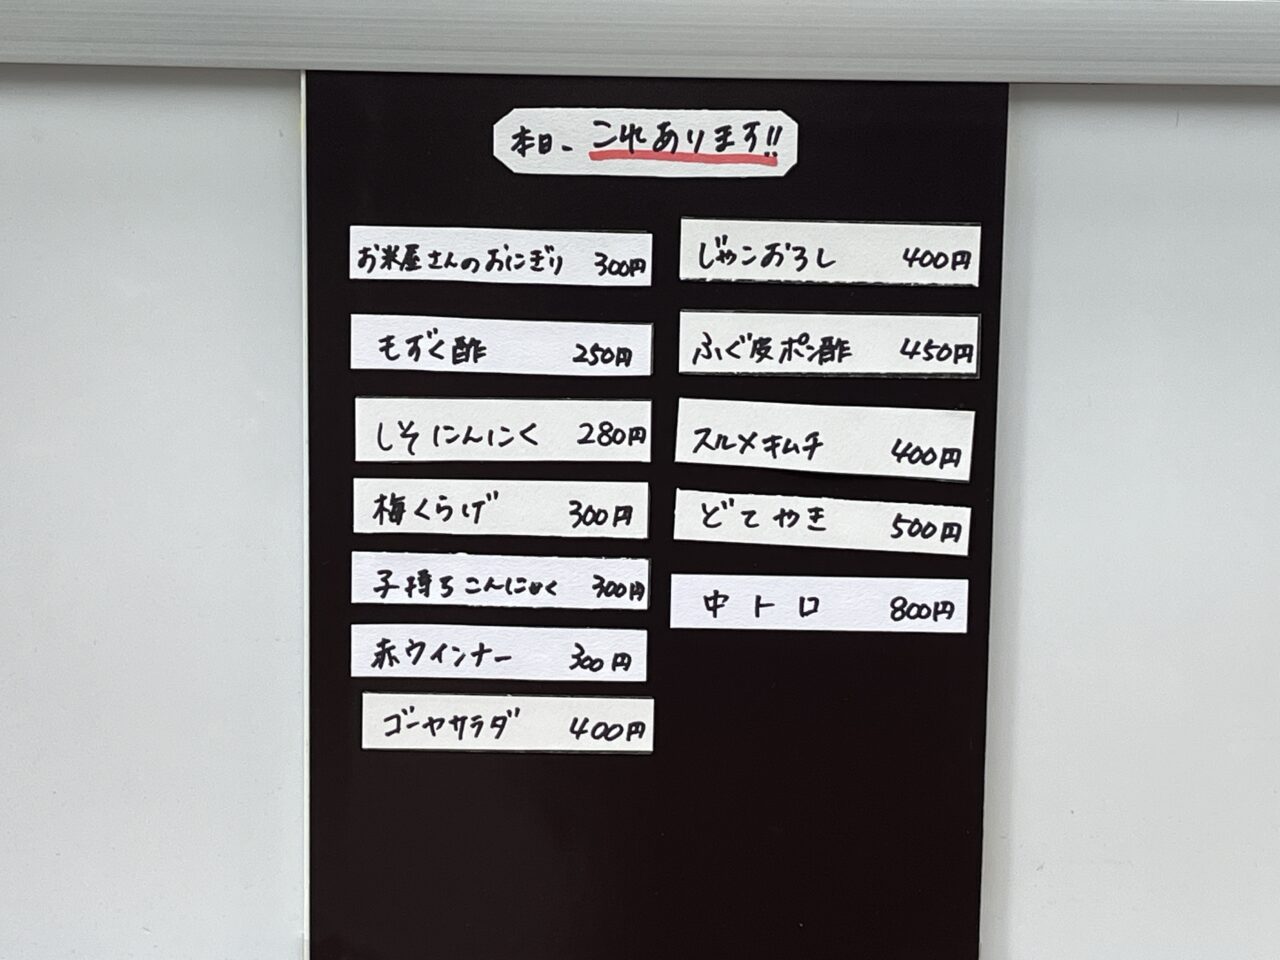 本日、これあります!!
お米屋さんのおにぎり 300円
もずく酢 250円
しそにんにく 280円
梅くらげ 300円
子持ちこんにゃく 300円
赤ウインナー 300円
ゴーヤサラダ 400円
じゃこおろし 400円
ふぐ皮ポン酢 450円
スルメキムチ 400円
どてやき 500円
中トロ 800円